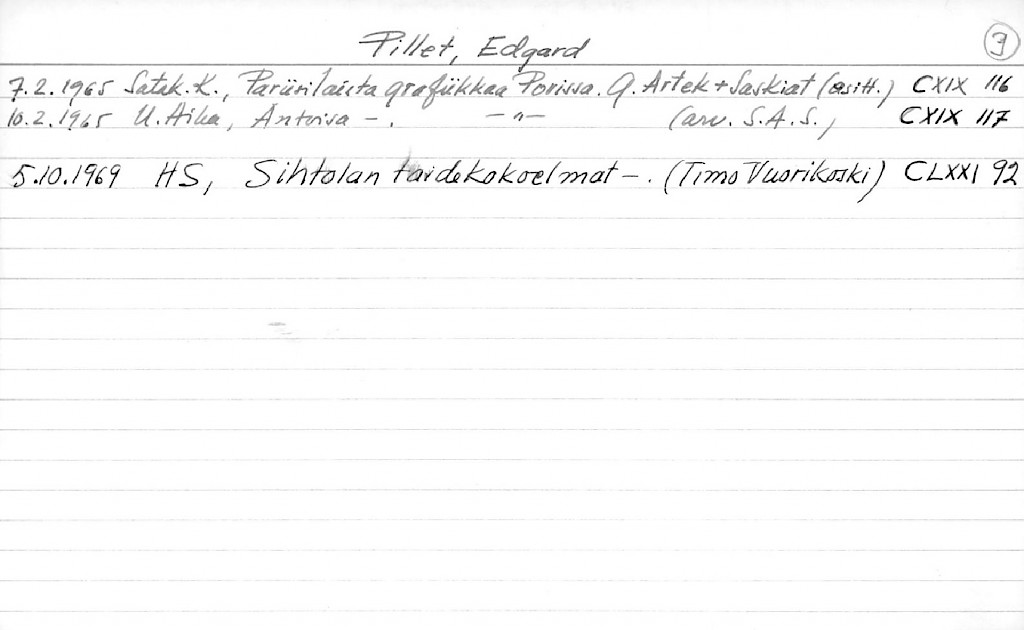 Pillet, Edgard
3
7.2.1965 Satak.K., Pariisilaista grafiikkaa Porissa. G. Artek + Saskiat (esitt.) CXIX 116
10.2.1965 U. Aika, Antoisa – . – " – (arv. S.A.S.) CXIX 117
5.10.1969 HS, Sihtolan taidekokoelmat – . (Timo Vuorikoski) CLXXI 92